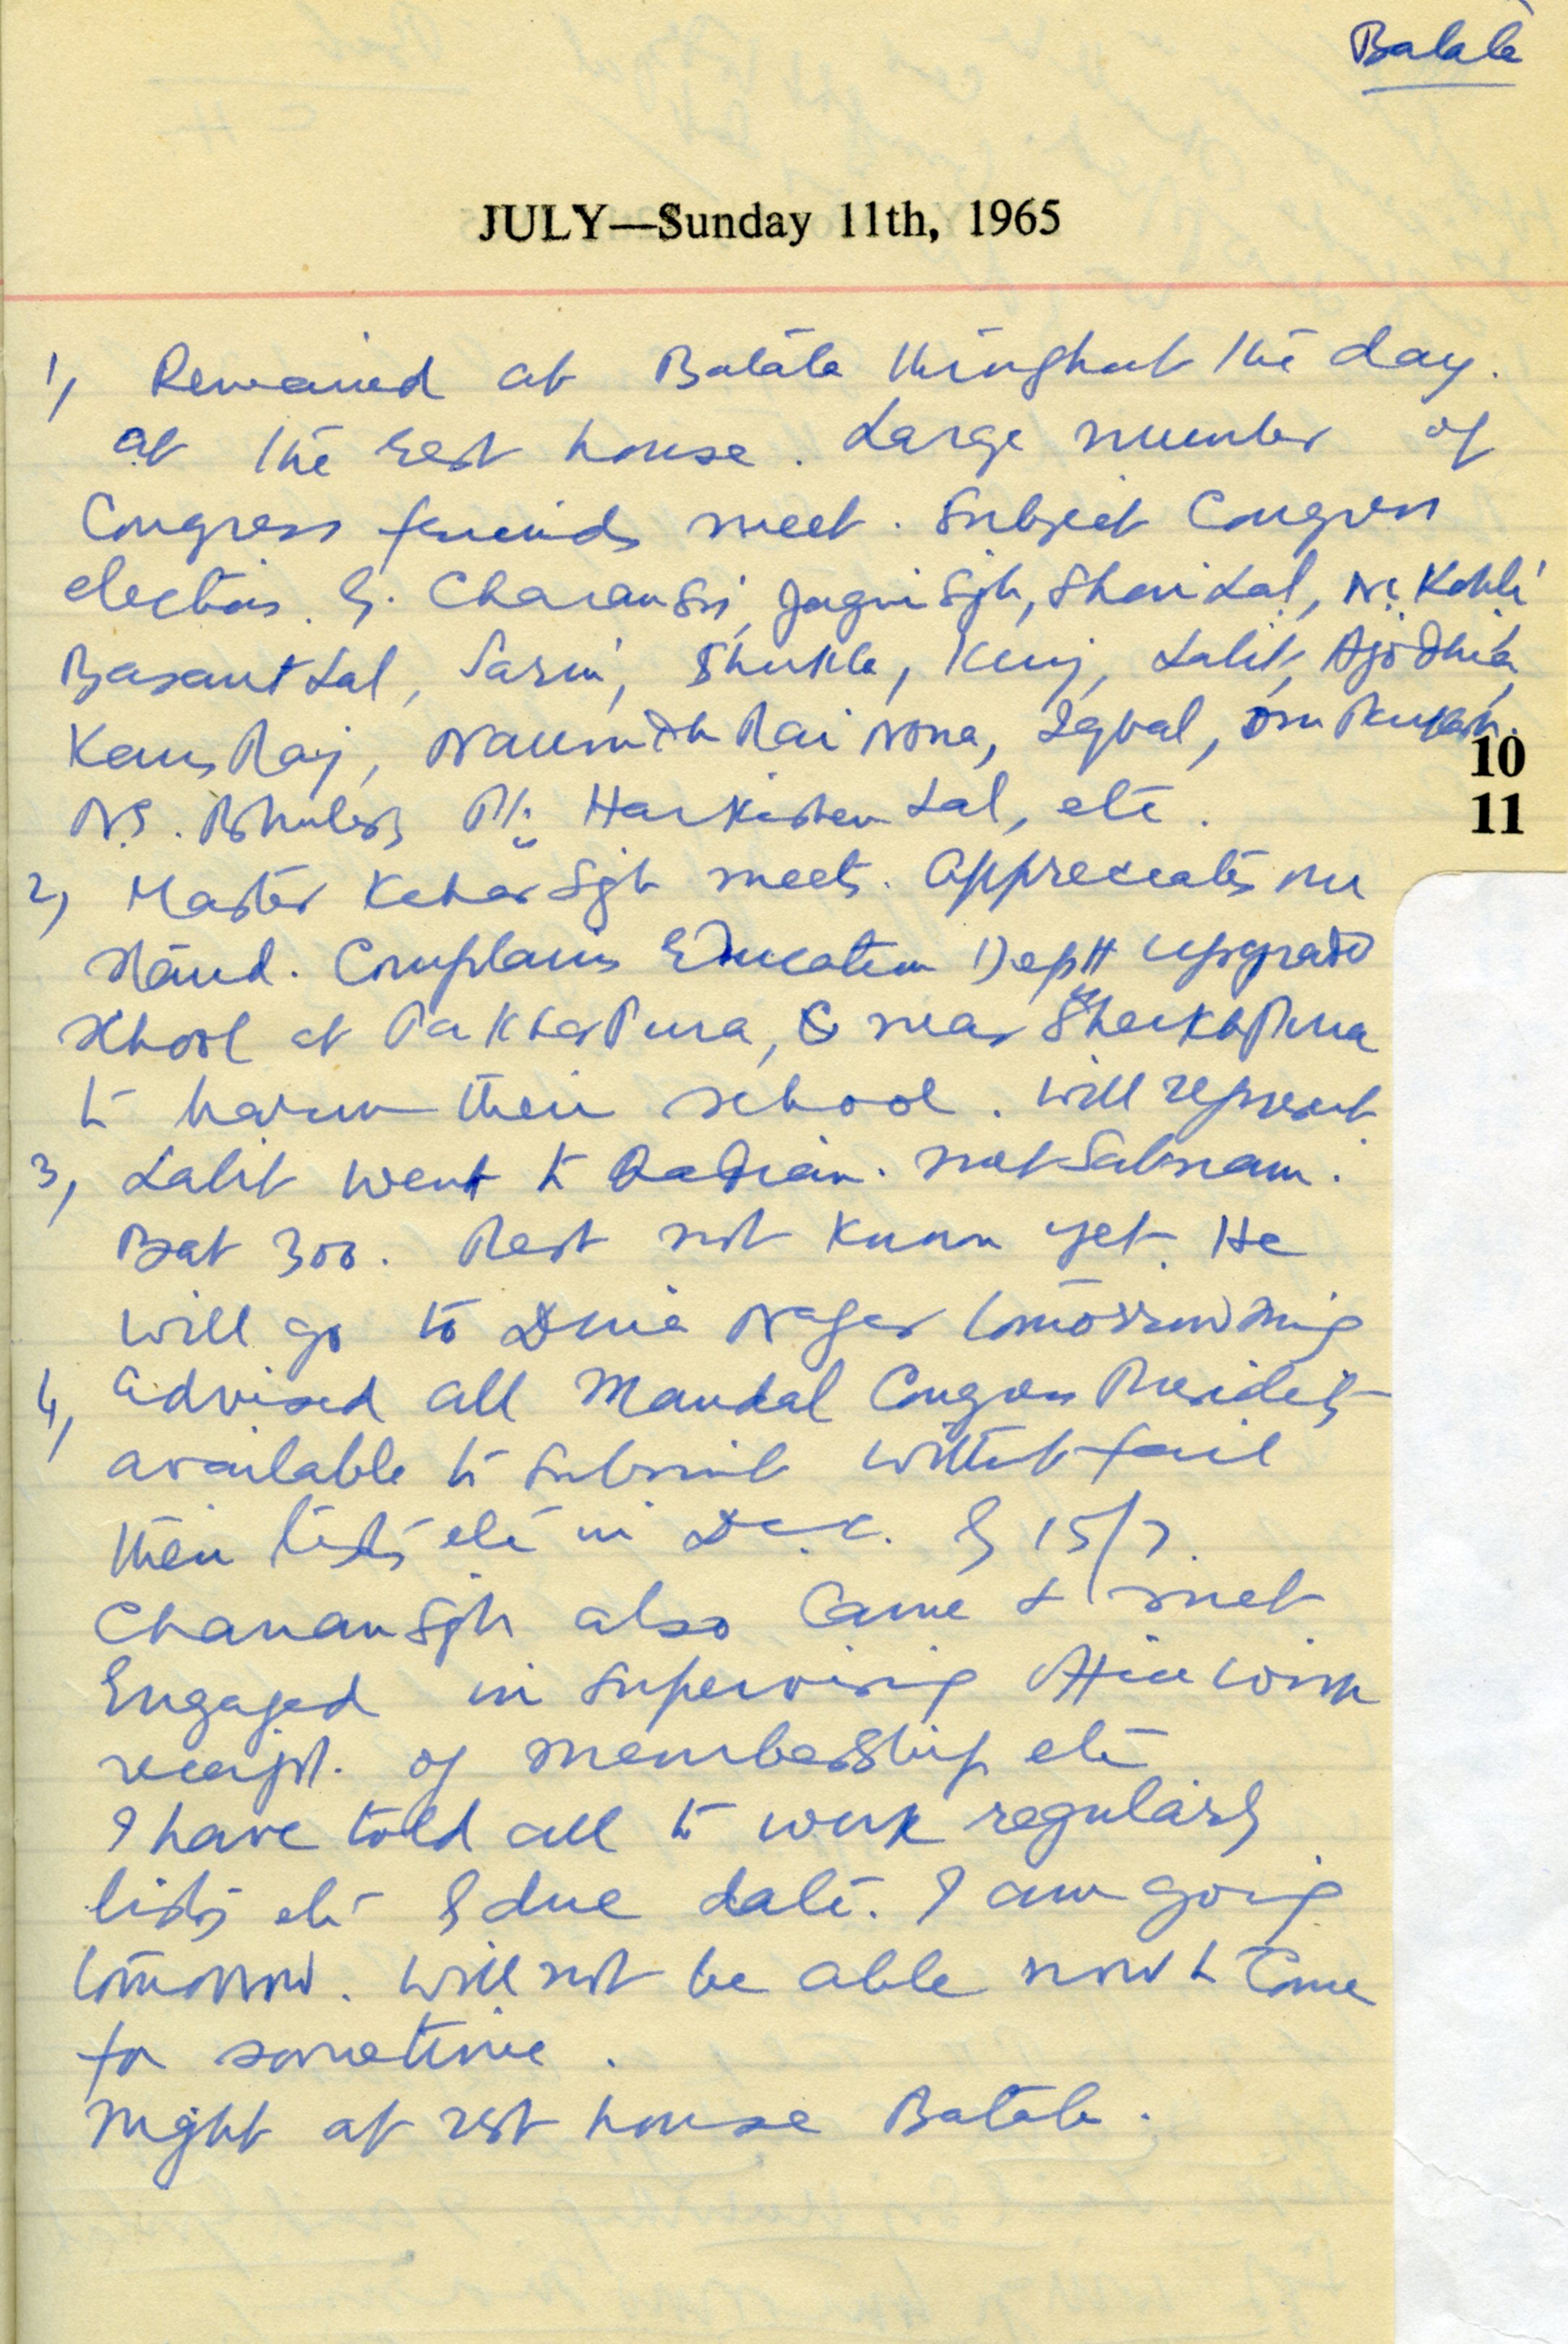 Batala
JULY—Sunday 11th, 1965
1, Remained at Batala throughout the day.
at the rest house. Large number of
Congress friends meet. Subject Congress
elections. S. Charan Sgh, Shori Lal, Kohli
Basant Lal, Sarin, Shukla, Kunj, Lalit, Ajodhia,
Kans Raj, Rai Nona, Iqbal, Om Prakash.
10
N.S. Pt. Harkishen Lal, etc.
11
2, Master Kehar Sgh meets. Appreciates my
stand. Complains Education Deptt upgrade
school at PakharPura, near SheikhPura
to harm their school. Will represent
3, Lalit went to Qadian. met Satnam.
Bat 300. Rest not known yet. He
will go to Dina Nagar tomorrow mng
4, Advised all Mandal Congress Presidents
available to submit without fail
their lists etc in D.C.C. by 15/7.
Chanan Sgh also came & met
Engaged in supervising office work
receipt. of membership etc
I have told all to work regularly
lists etc by due date. I am going
tomorrow. Will not be able now to come
for sometime.
Night at rest house Batala.